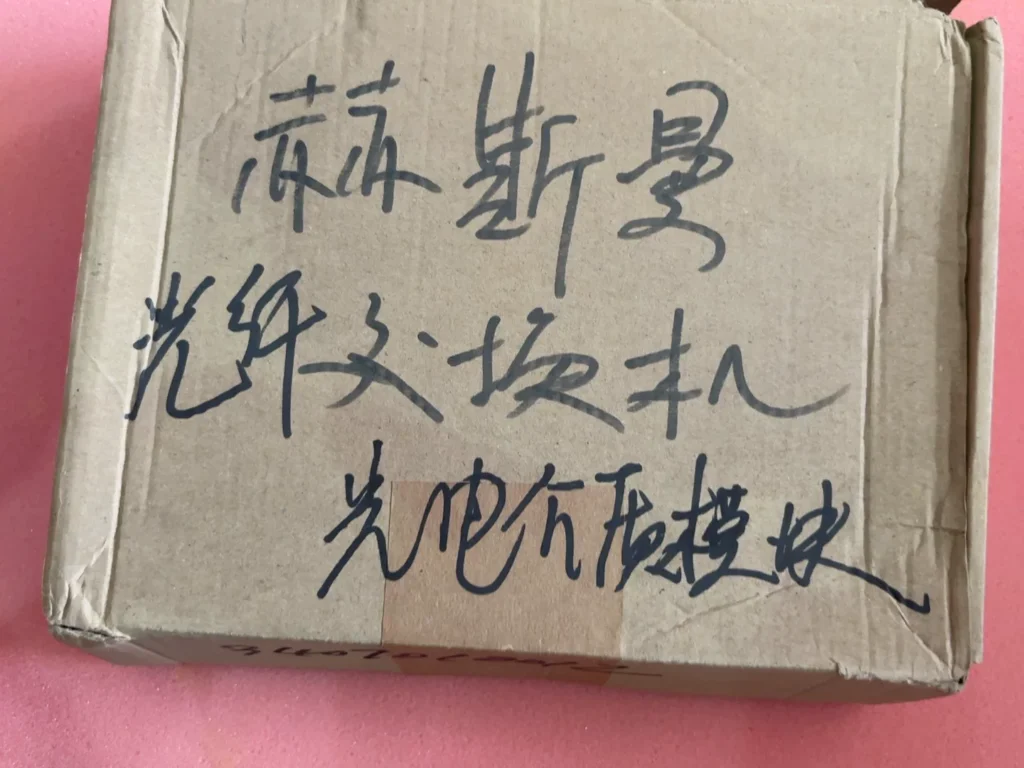 赫斯曼
光纤交换机
光电介质模块